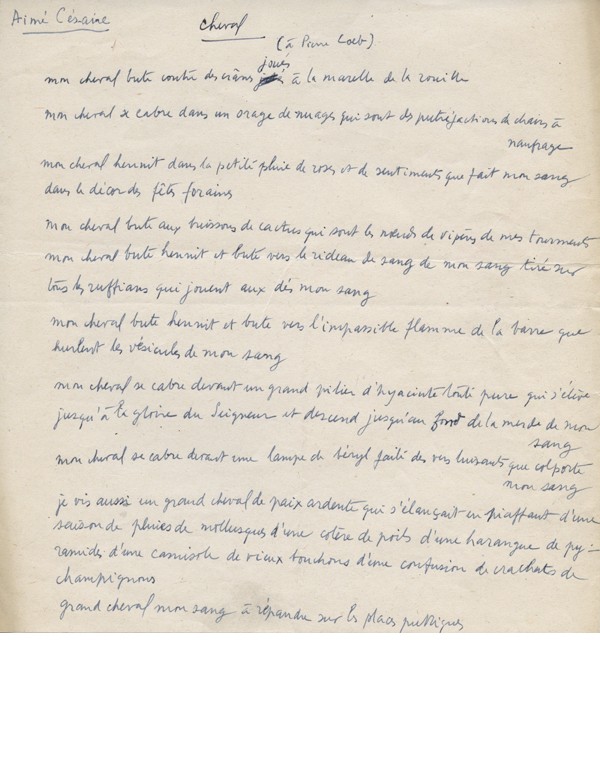 Aimé Césaire
Cheval
(à Pierre Loeb)
joués
mon cheval bute contre des crânes à la marelle de la rouille
mon cheval se cabre dans un orage de nuages qui sont des putréfactions de chairs à
naufrage
mon cheval hennit dans la petite pluie de roses et de sentiments que fait mon sang
dans le décor des fêtes foraines
mon cheval bute aux buissons de cactus qui sont les nœuds de vipères de mes tourments
mon cheval bute hennit et bute vers le rideau de sang de mon sang tiré sur
tous les ruffians qui jouent aux dés mon sang
mon cheval bute hennit et bute vers l'impassible flamme de la barre que
hurlent les vésicules de mon sang
mon cheval se cabre devant un grand pilier d'hyacinte toute pure qui s'élève
jusqu'à la gloire du Seigneur et descend jusqu'au fond de la merde de mon
sang
mon cheval se cabre devant une lampe de béryl faite des vers luisants que colporte
mon sang
je vis aussi un grand cheval de paix ardente qui s'élançait en piaffant d'une
saison de pluies de mollusques d'une colère de poils d'une harangue de py-
ramides d'une camisole de vieux bouchons d'une confusion de crachats de
champignons
grand cheval mon sang à répandre sur les places publiques